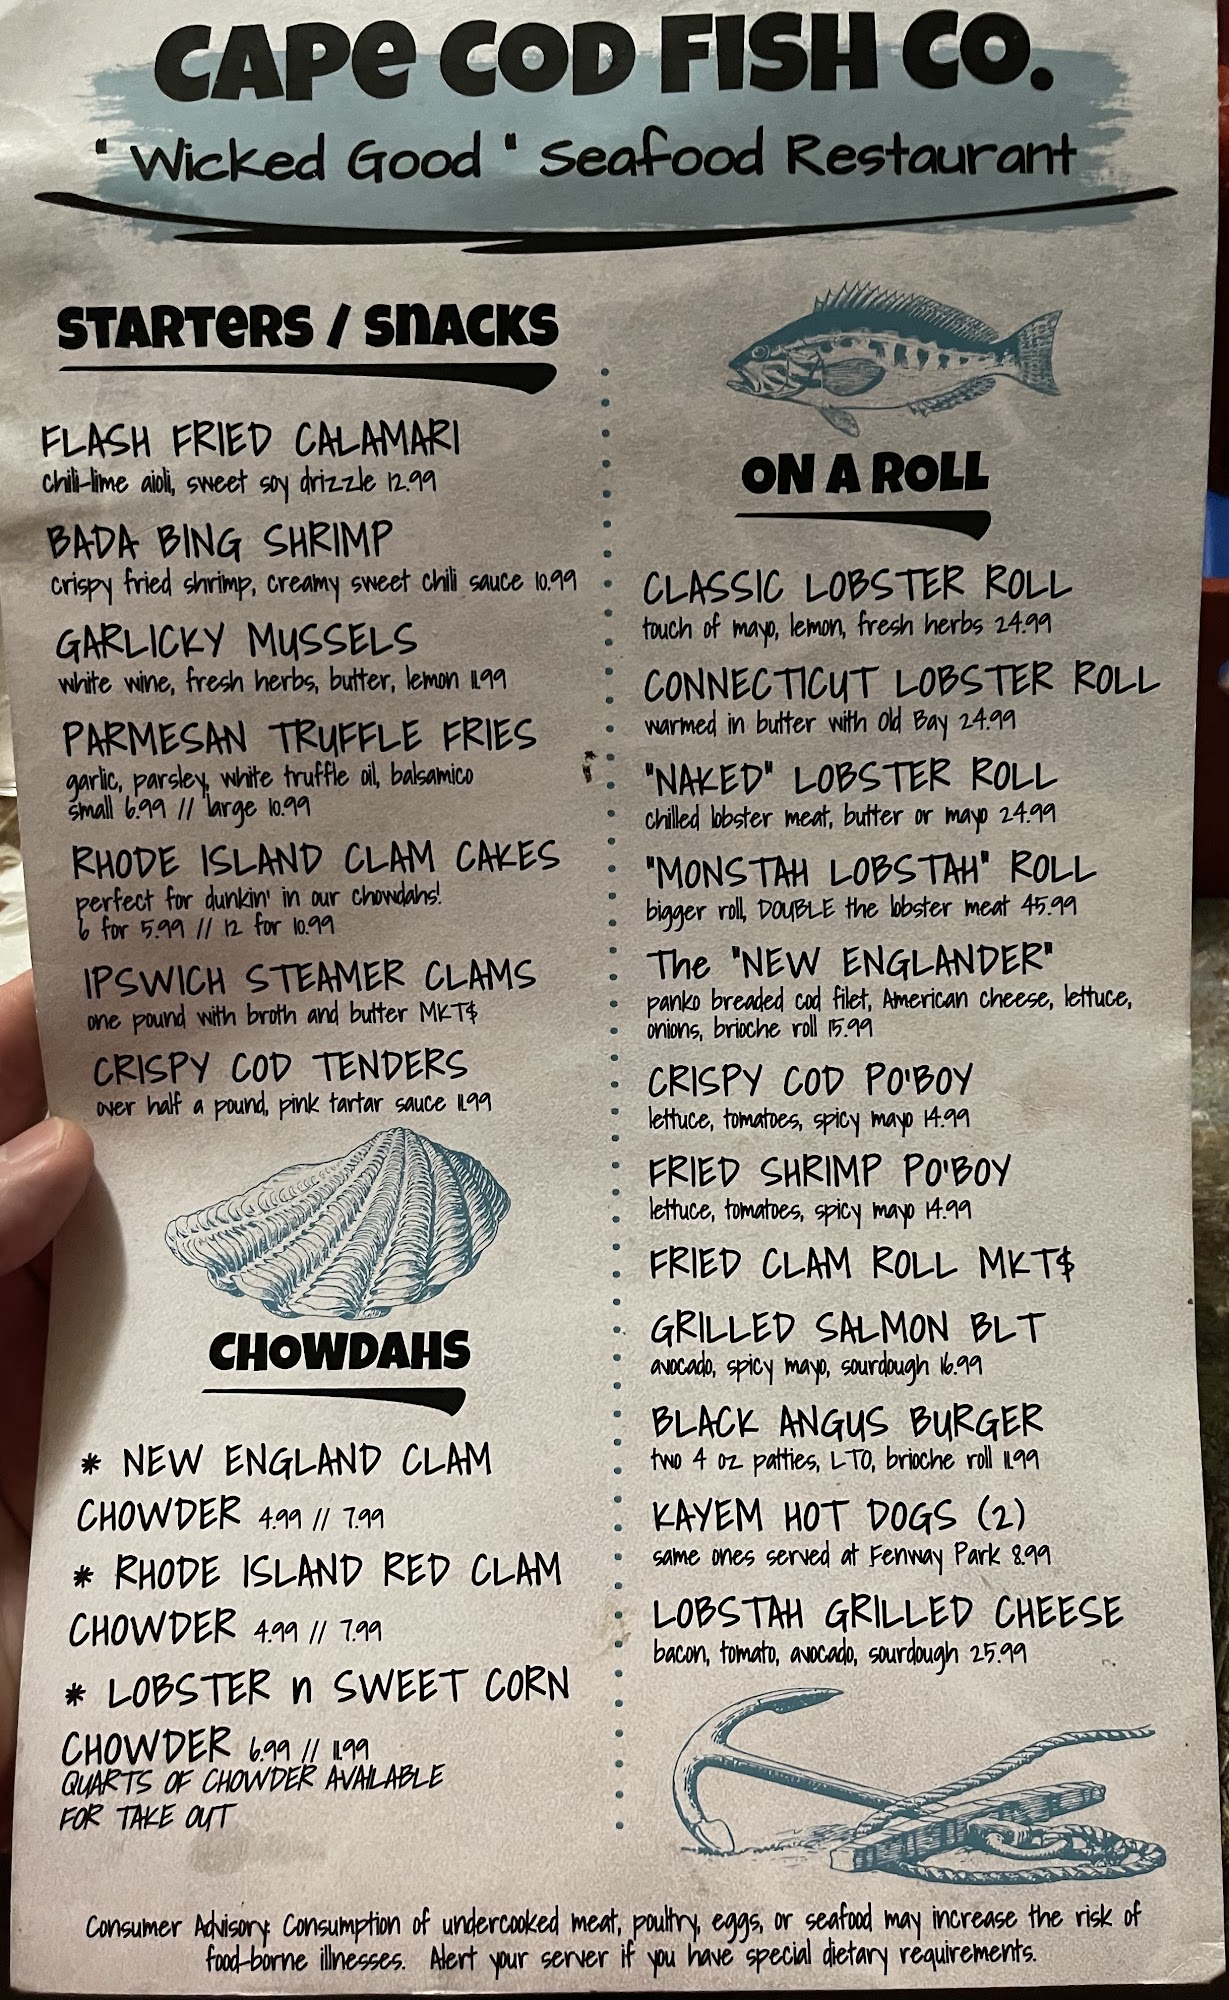 CAPE COD FISH CO.
"Wicked Good" Seafood Restaurant
STARTERS / SNACKS
FLASH FRIED CALAMARI
chili-lime aioli, sweet soy drizzle 12.99
BADA BING SHRIMP
crispy fried shrimp, creamy sweet chili sauce 10.99
GARLICKY MUSSELS
white wine, fresh herbs, butter, lemon 11.99
PARMESAN TRUFFLE FRIES
garlic, parsley, white truffle oil, balsamico
small 6.99 // large 10.99
RHODE ISLAND CLAM CAKES
perfect for dunkin' in our chowdahs!
6 for 5.99 // 12 for 10.99
IPSWICH STEAMER CLAMS
one pound with broth and butter MKT$
CRISPY COD TENDERS
over half a pound, pink tartar sauce 11.99
CHOWDAHS
* NEW ENGLAND CLAM
CHOWDER 4.99 // 7.99
* RHODE ISLAND RED CLAM
CHOWDER 4.99 // 7.99
* LOBSTER n SWEET CORN
CHOWDER 6.99 // 11.99
QUARTS OF CHOWDER AVAILABLE
FOR TAKE OUT
ON A ROLL
CLASSIC LOBSTER ROLL
touch of mayo, lemon, fresh herbs 24.99
CONNECTICUT LOBSTER ROLL
warmed in butter with Old Bay 24.99
"NAKED" LOBSTER ROLL
chilled lobster meat, butter or mayo 24.99
"MONSTAH LOBSTAH" ROLL
bigger roll, DOUBLE the lobster meat 45.99
The "NEW ENGLANDER"
panko breaded cod filet, American cheese, lettuce,
onions, brioche roll 15.99
CRISPY COD PO'BOY
lettuce, tomatoes, spicy mayo 14.99
FRIED SHRIMP PO'BOY
lettuce, tomatoes, spicy mayo 14.99
FRIED CLAM ROLL MKT$
GRILLED SALMON BLT
avocado, spicy mayo, sourdough 16.99
BLACK ANGUS BURGER
two 4 oz patties, LTO, brioche roll 11.99
KAYEM HOT DOGS (2)
same ones served at Fenway Park 8.99
LOBSTAH GRILLED CHEESE
bacon, tomato, avocado, sourdough 25.99
Consumer Advisory: Consumption of undercooked meat, poultry, eggs, or seafood may increase the risk of
food-borne illnesses. Alert your server if you have special dietary requirements.